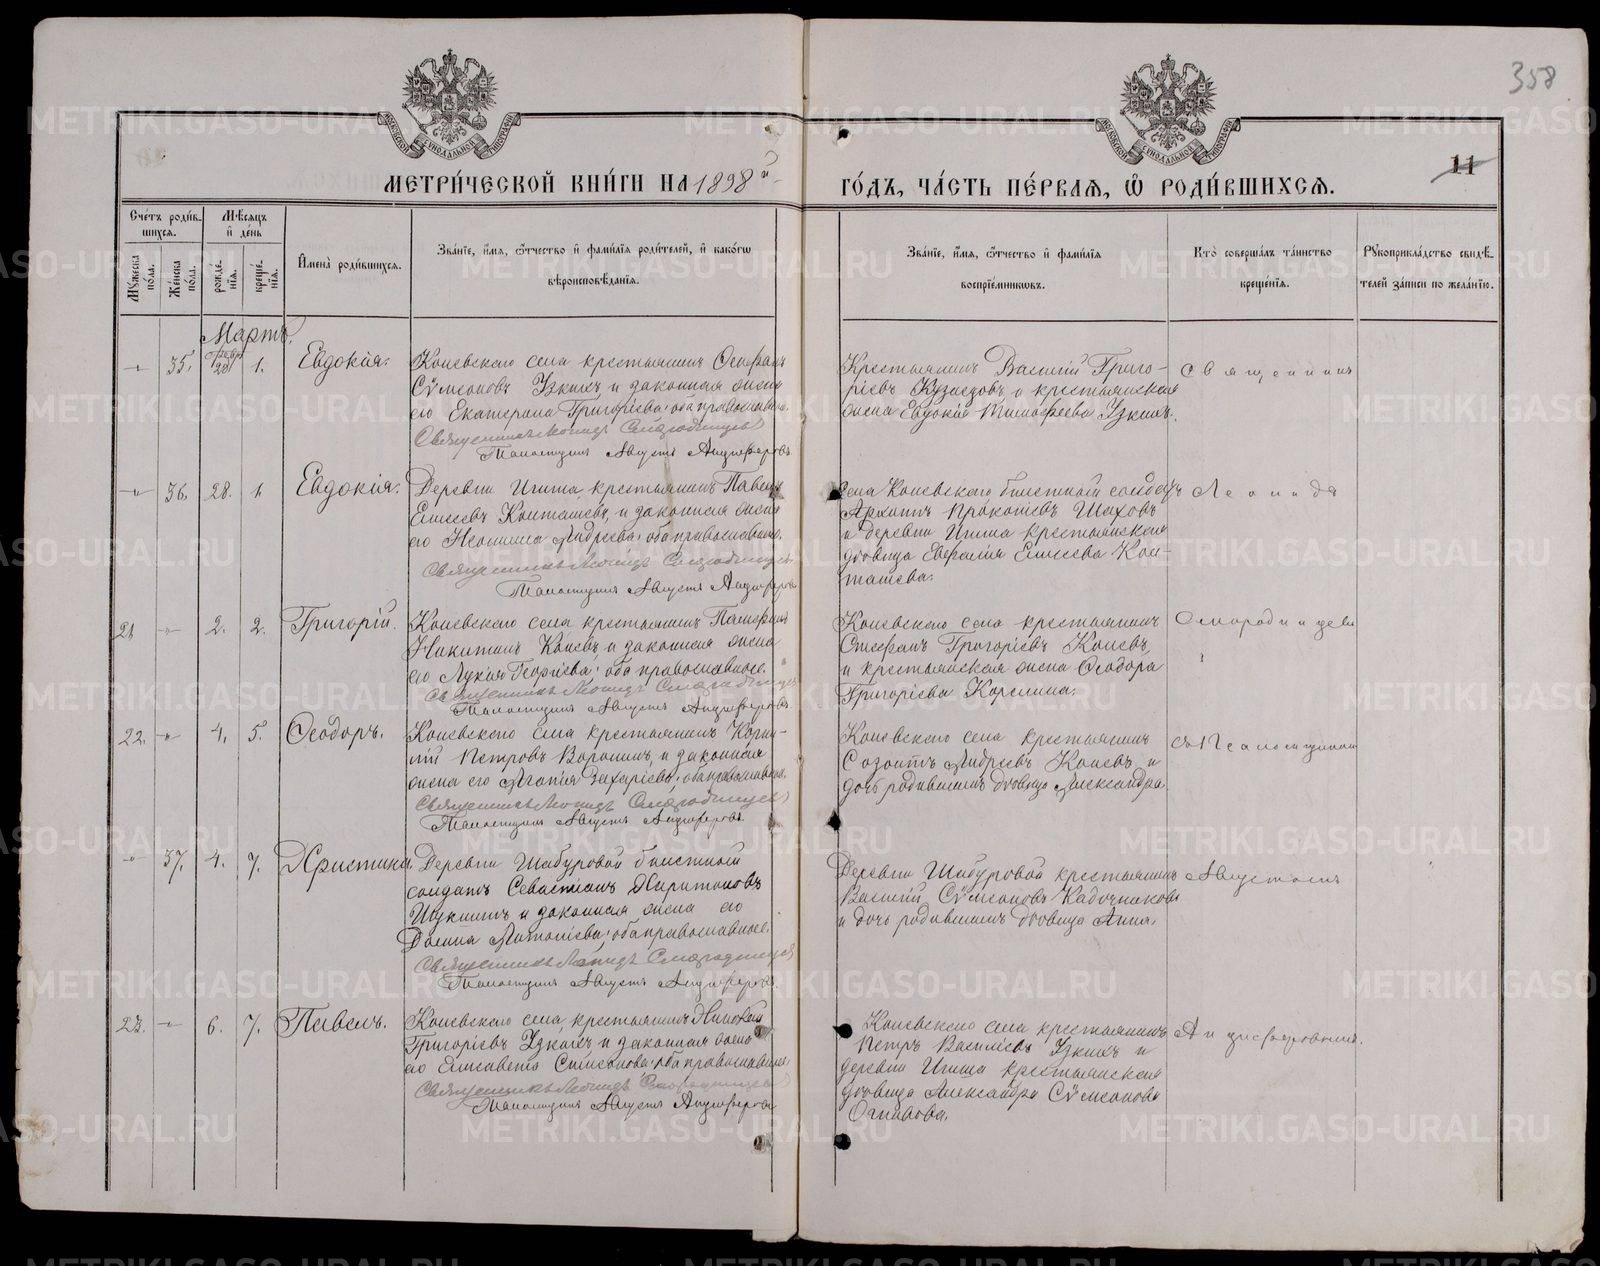 358
11
МОСКОВСКОЙ СѴНОДАЛЬНОЙ ТИПОГРАФІИ
МОСКОВСКОЙ СѴНОДАЛЬНОЙ ТИПОГРАФІИ
МЕТРИ́ЧЕСКОЙ КНИ́ГИ НА 1898й
ГО́ДЪ, ЧА́СТЬ ПЕ́РВАЯ, Ѡ҆ РОДИ́ВШИХСЯ.
Сче́тъ роди́в-
шихся.
Му́жеска
по́ла.
Же́нска
по́ла.
Мѣ́сяцъ
и҆ де́нь
рожде́-
нїя.
креще́-
нїя.
И҆мена̀ роди́вшихся.
Зва́нїе, и҆́мя, ѻ҆́тчество и҆ фами́лїя роди́телей, и҆ како́гѡ
вѣроисповѣ́данїя.
Зва́нїе, и҆́мя, ѻ҆́тчество и҆ фами́лїя
воспрїе́мниковъ.
Кто̀ соверша́лъ та́инство
креще́нїя.
Рукоприкла́дство свидѣ́-
телей за́писи по жела́нїю.
Мартъ.
-„- 35. февр. 28 1. Евдокія.
Коневскаго села крестьянинъ Ѳеофанъ
Сѵмеоновъ Узкихъ и законная жена
его Екатерина Григоріева, оба православн.
Священникъ Леонидъ Смородинцевъ
Псаломщикъ Августъ Анциферовъ
Крестьянинъ Василій Григо-
ріевъ и крестьянская
жена Евдокія Тимофеева Узкихъ.
Священникъ
-„- 36. 28. 1. Евдокія.
Деревни Игиша, крестьянинъ Павелъ
Елисеевъ и законная жена
его Неонилла Андреева, оба православного.
Священникъ Леонидъ Смородинцевъ
Псаломщикъ Августъ Анциферовъ
Села Коневского билетный солдатъ
Архиппъ Прокопіевъ Шаховъ
и деревни Игиша крестьянская
дѣвица Елисеева
Леонидъ
21 -„- 2. 2. Григорій.
Коневского села крестьянинъ Памфилъ
Никитинъ Коневъ и законная жена
его Лукія Георгіева, оба православное.
Священникъ Леонидъ Смородинцевъ
Псаломщикъ Августъ Анциферовъ
Коневского села крестьянинъ
Стефанъ Григоріевъ Коневъ,
и крестьянская жена Ѳеодора
Григоріева Корелина.
Смородинцевъ
22. -„- 4. 5. Ѳеодоръ.
Коневского села крестьянинъ Корни-
лій Петровъ Воронинъ и законная
жена его Агапія Захаріева, оба православн.
Священникъ Леонидъ Смородинцевъ
Псаломщикъ Августъ Анциферовъ
Коневского села крестьянинъ
Созонтъ Андреевъ Коневъ и
дочь родившихъ дѣвица Александра
съ Псаломщикомъ
-„- 37. 4. 7. Христина
Деревни Шабуровой билетный
солдатъ Севастіанъ Харитоновъ
и законная жена его
Домна Антоніева, оба православное.
Священникъ Леонидъ Смородинцевъ
Псаломщикъ Августъ Анциферовъ
Деревни Шабуровой крестьянинъ
Василій Сѵмеоновъ Кадочниковъ
и дочь родившихъ дѣвица Анна.
Августомъ
23. -„- 6. 7. Павелъ.
Коневского села, крестьянинъ Николай
Григоріевъ Узкихъ и законная жена
его Елисавета Симеонова, оба православные.
Священникъ Леонидъ Смородинцевъ
Псаломщикъ Августъ Анциферовъ
Коневского села крестьянинъ
Петръ Василіевъ Узкихъ и
деревни Игиша крестьянская
дѣвица Александра Сѵмеонова
Огнивова.
Анциферовымъ.
METRIKI.GASO-URAL.RU